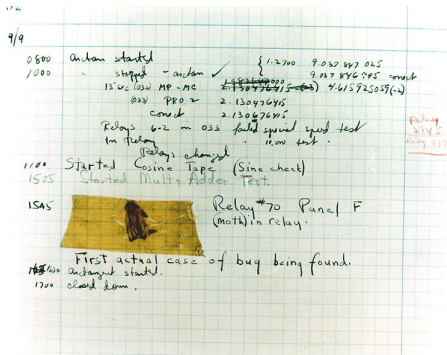 9/9
0800 Antan started
1000 " stopped - antan ✓ { 1.2700 9.037 847 025
9.037 846 995 correct
13" uc (032) MP-MC 2.130476415 (-3) 4.615925059(-2)
(033) PRO 2 2.130476415
correct 2.130676415
Relays 6-2 in 033 failed special speed test
In Relay " 10,000 test.
Relays changed
Relay
2145
Relay 3370
1100 Started Cosine Tape (Sine check)
1525 Started Multi Adder Test.
1545 Relay #70 Panel F
(moth) in relay.
First actual case of bug being found.
1630 antangent started.
1700 closed down.